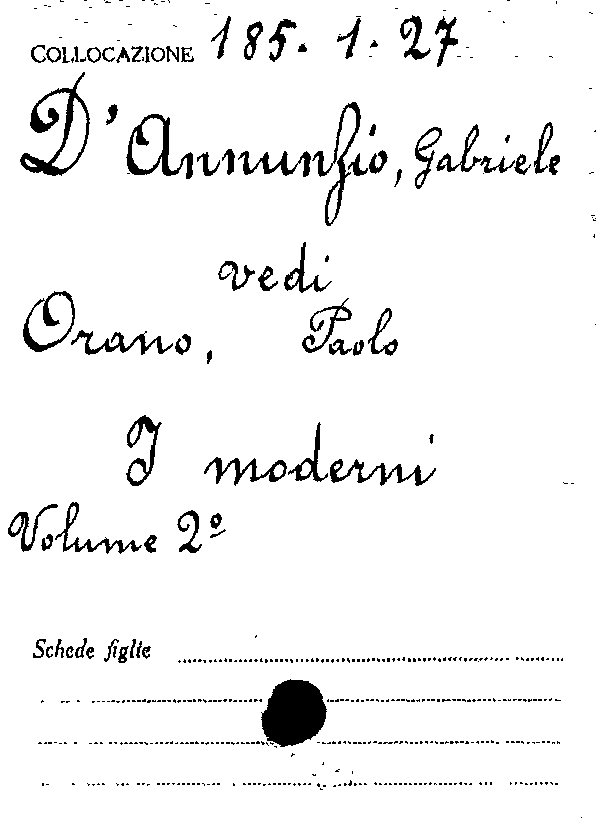 COLLOCAZIONE 185. 1. 27
D'Annunzio, Gabriele
vedi
Orano, Paolo
I moderni
Volume 2º
Schede figlie